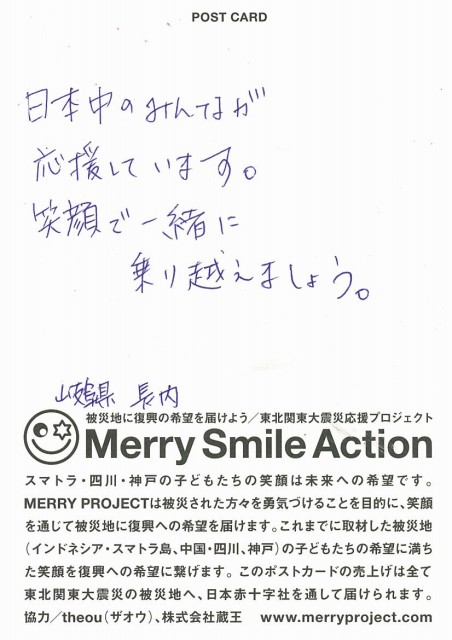 POST CARD
日本中のみんなが
応援しています。
笑顔で一緒に
乗り越えましょう。
岐阜県 長内
被災地に復興の希望を届けよう／東北関東大震災応援プロジェクト
Merry Smile Action
スマトラ・四川・神戸の子どもたちの笑顔は未来への希望です。
MERRY PROJECTは被災された方々を勇気づけることを目的に、笑顔
を通じて被災地に復興への希望を届けます。これまでに取材した被災地
（インドネシア・スマトラ島、中国・四川、神戸）の子どもたちの希望に満ち
た笑顔を復興への希望に繋げます。このポストカードの売上げは全て
東北関東大震災の被災地へ、日本赤十字社を通して届けられます。
協力／theou（ザオウ）、株式会社蔵王　www.merryproject.com